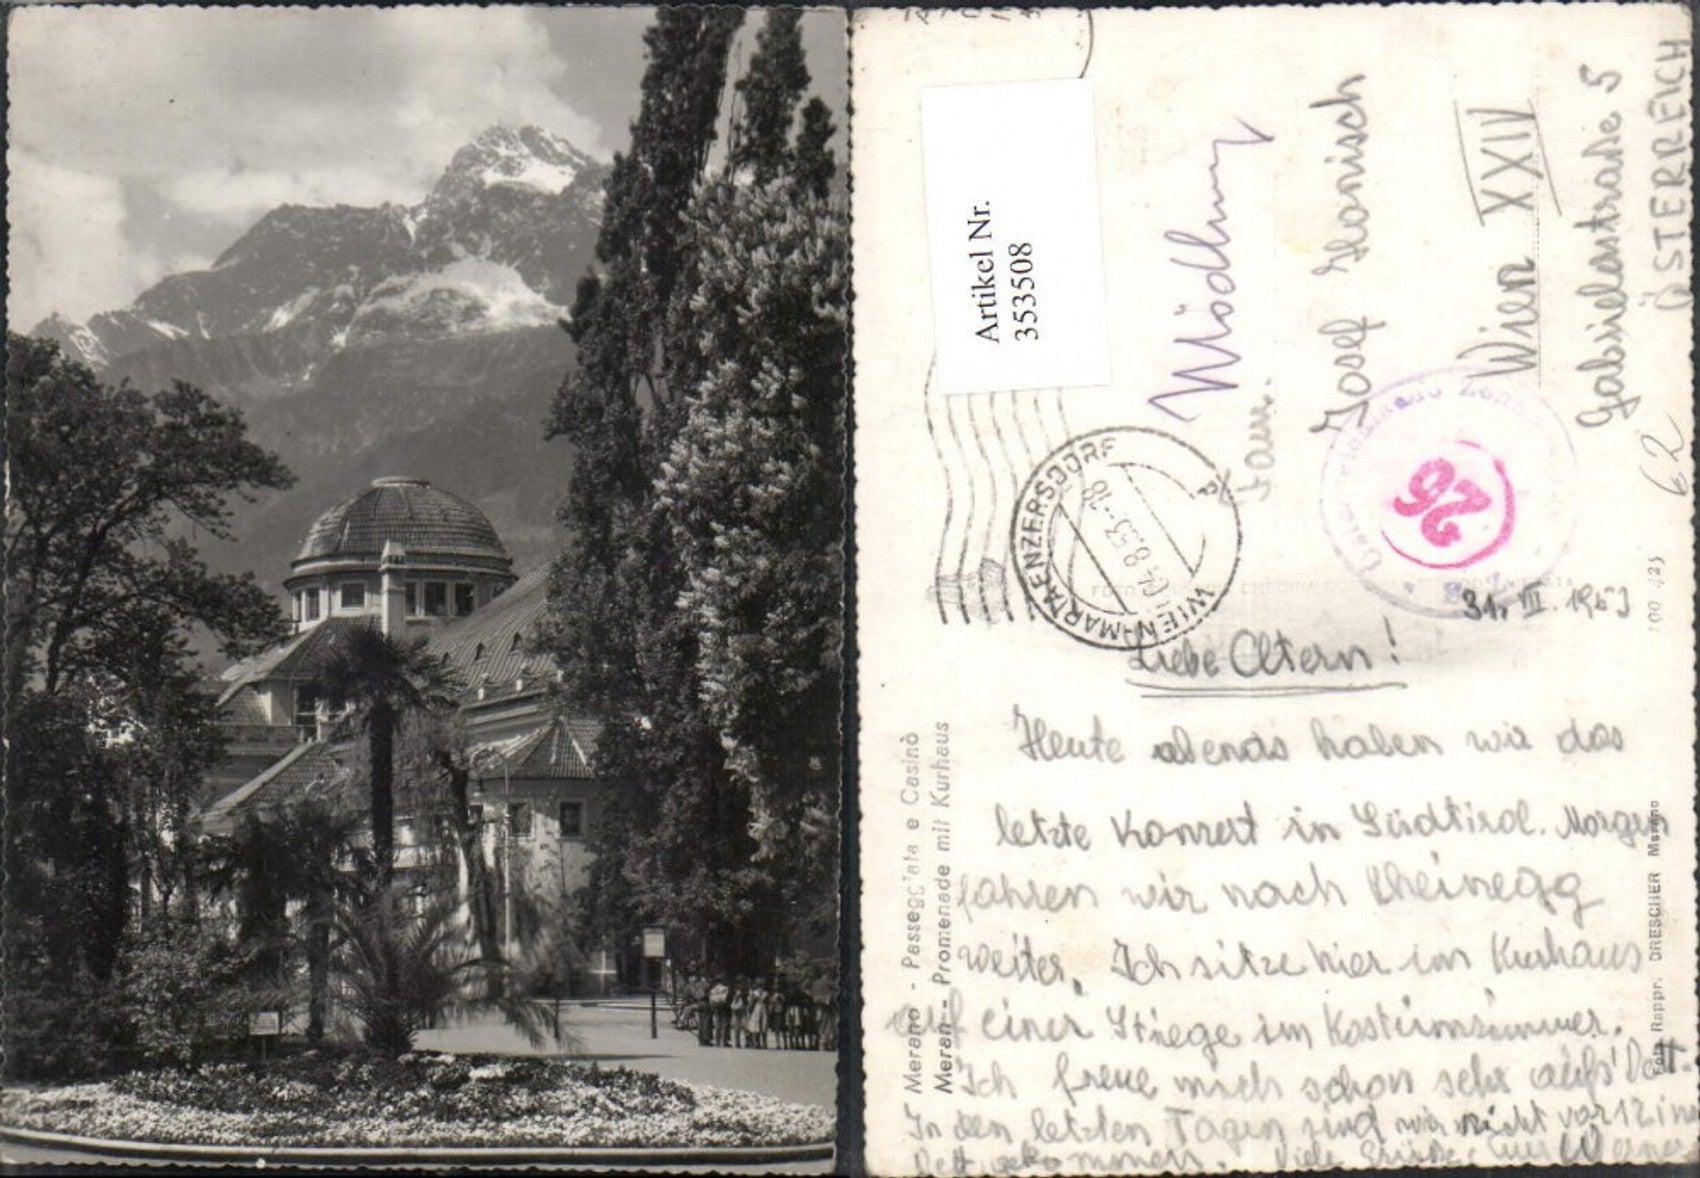 Artikel Nr.
353508
Mödling
Fam.
Josef
Wien XXIV
Gabrielerstraße 5
ÖSTERREICH
62
WIEN-MARIA ENZERSDORF
04.8.53-18
26
100 423
31. VII. 1953
Liebe Eltern!
Heute abends haben wir das
letzte Konzert in Südtirol. Morgen
fahren wir nach Rheinegg
weiter. Ich sitze hier im Kurhaus
auf einer Stiege im Kostümzimmer.
Ich freue mich schon sehr aufs Bett.
In den letzten Tagen sind wir nicht vor 12 ins
Bett gekommen. Viele Grüße, Euer Werner
Merano - Passeggiata e Casinò
Meran - Promenade mit Kurhaus
Foto Rappr. DRESCHER Merano